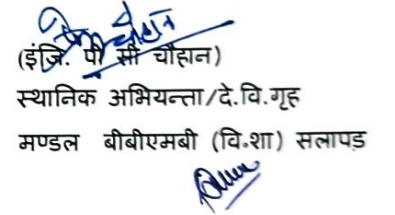 (इंजि. पी सी चौहान)
स्थानिक अभियन्ता/दे.वि.गृह
मण्डल बीबीएमबी (वि.शा) सलापड़